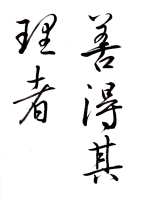 善得其
理者